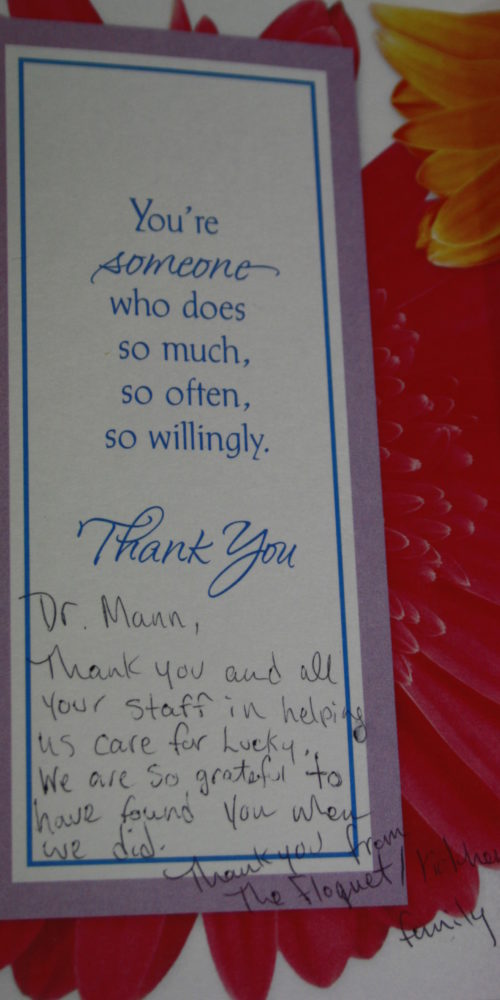 You're
someone
who does
so much,
so often,
so willingly.
Thank You
Dr. Mann,
Thank you and all
your staff in helping
us care for Lucky.
We are so grateful to
have found you when
we did.
Thank you from
The Floquet /
family